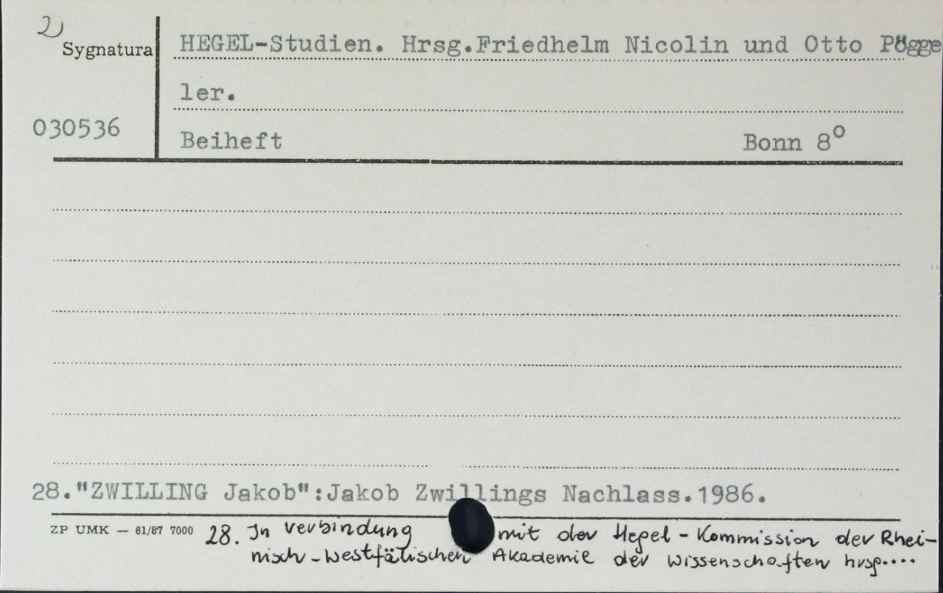 2)
Sygnatura
HEGEL-Studien. Hrsg.Friedhelm Nicolin und Otto Pögge
ler.
030536
Beiheft Bonn 8°
28."ZWILLING Jakob":Jakob Zwillings Nachlass.1986.
ZP UMK — 61/87 7000
28. In Verbindung mit der Hegel-Kommission der Rhei-
nisch-Westfälischen Akademie der Wissenschaften hrsg....